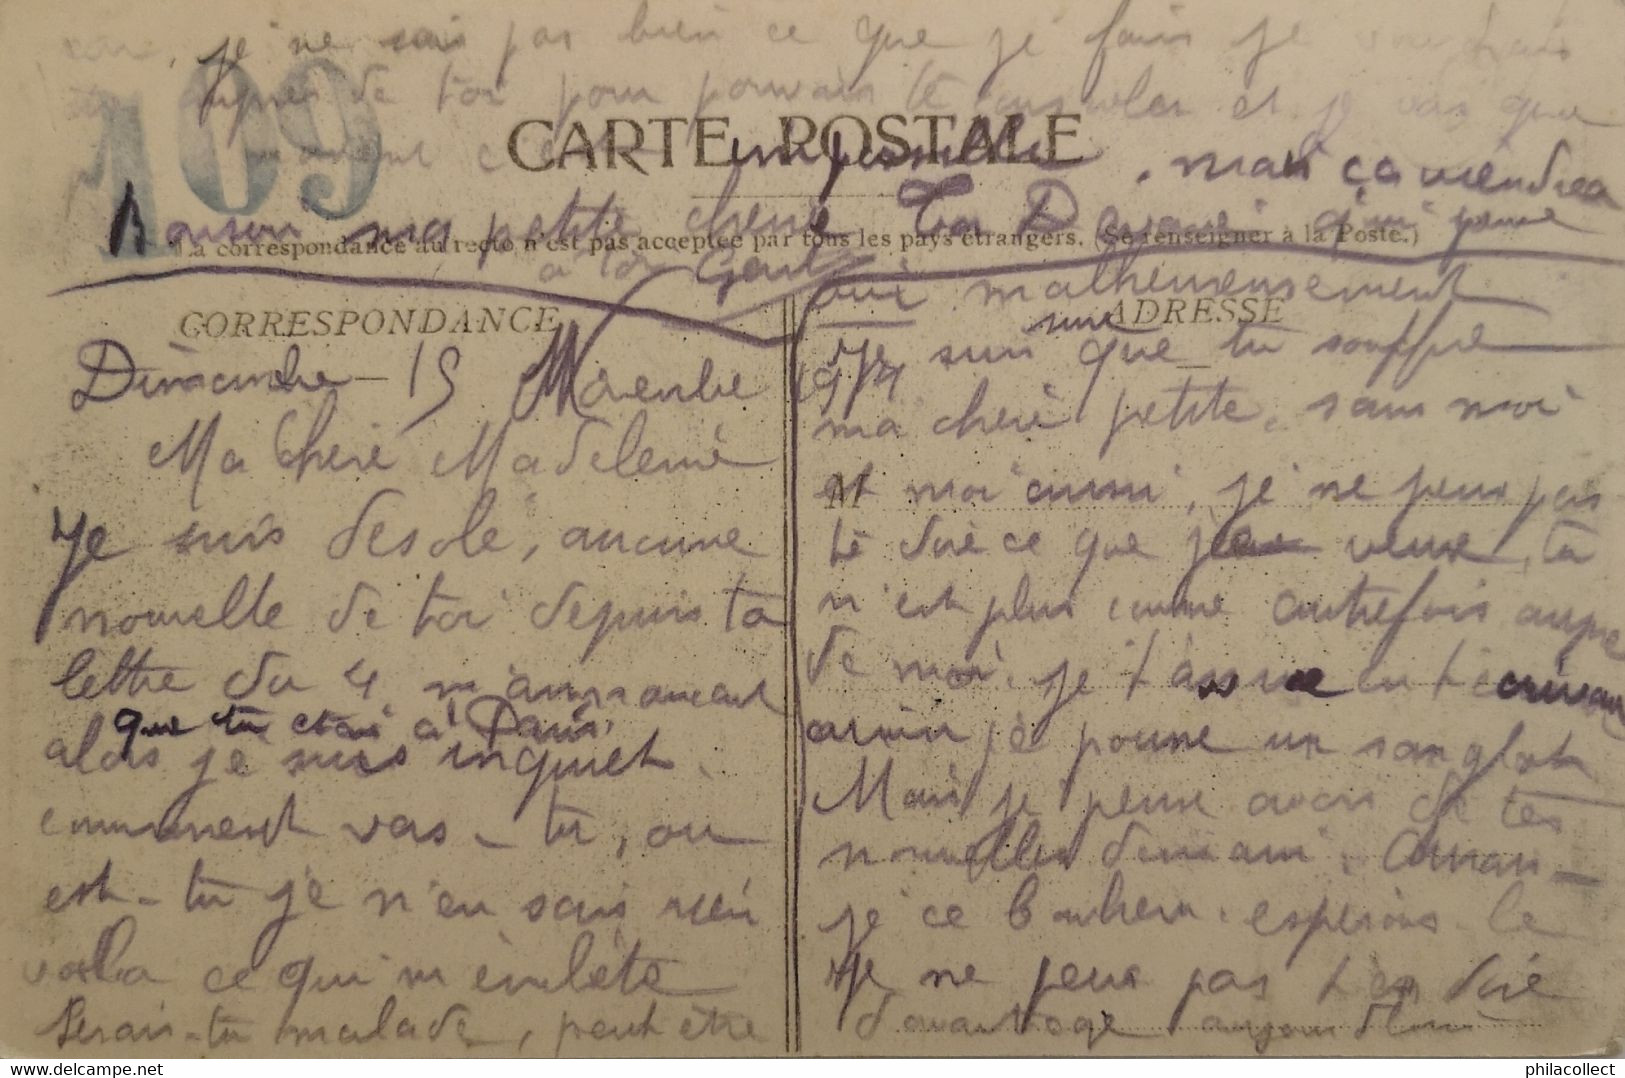 CARTE POSTALE
La correspondance au recto n'est pas acceptée par tous les pays étrangers. (Se renseigner à la Poste.)
CORRESPONDANCE
Dimanche - 15 Novembre 1914
Ma Cheré Madeleine
Je suis desolé, aucune
nouvelle de toi depuis ta
lettre du 4 m'annoncant
que tu etais à Paris,
alors je suis inquiet.
comment vas-tu, ou
est-tu je n'en sais rien
voila ce qui m'embête
Serais-tu malade, peut être
ADRESSE
M
oui malheureusement
je suis sure que tu souffre
ma cheré petite, sans moi
et moi aussi, je ne peux pas
te dire ce que je veux, tu
n'est plus comme autrefois aupre
de moi. je t'assure en t'ecrivant
ainsi je pousse un sanglot
Mais je peux avoir de tes
nouvelles demain. Aurai-
je ce bonheur. esperons le
Je ne peux pas t'en dire
davantage aujourd'hui
car, je ne sais pas bien ce que je fais je voudrais
être aupres de toi pour pouvoir te consoler et je vois que
c'est impossible. mais ça viendra
Bonsoir ma petite cherie Ton D qui pense
a toi
109
philacollect